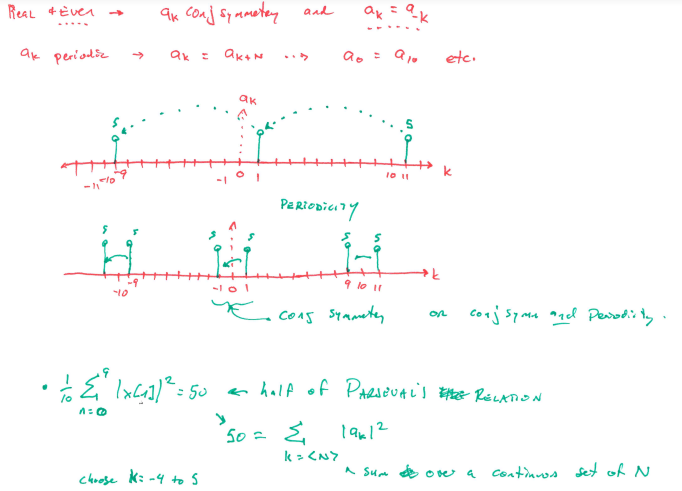 Real & Even → aₖ conj symmetry and aₖ = a₋ₖ
aₖ periodic → aₖ = aₖ₊N ⋯→ a₀ = a₁₀ etc.
aₖ
5 5
-11 -10 -9 -1 0 1 10 11 k
PERIODICITY
5 5 5 5 5 5
-10 -9 -1 0 1 9 10 11 k
conj symmetry or conj symm and Periodicity.
• 1/10 9 Σ n=0 |x[n]|² = 50 ← half of PARSEVAL'S RELATION
50 = Σ k=<N> |aₖ|²
choose k=-4 to 5 ^ sum over a continuous set of N